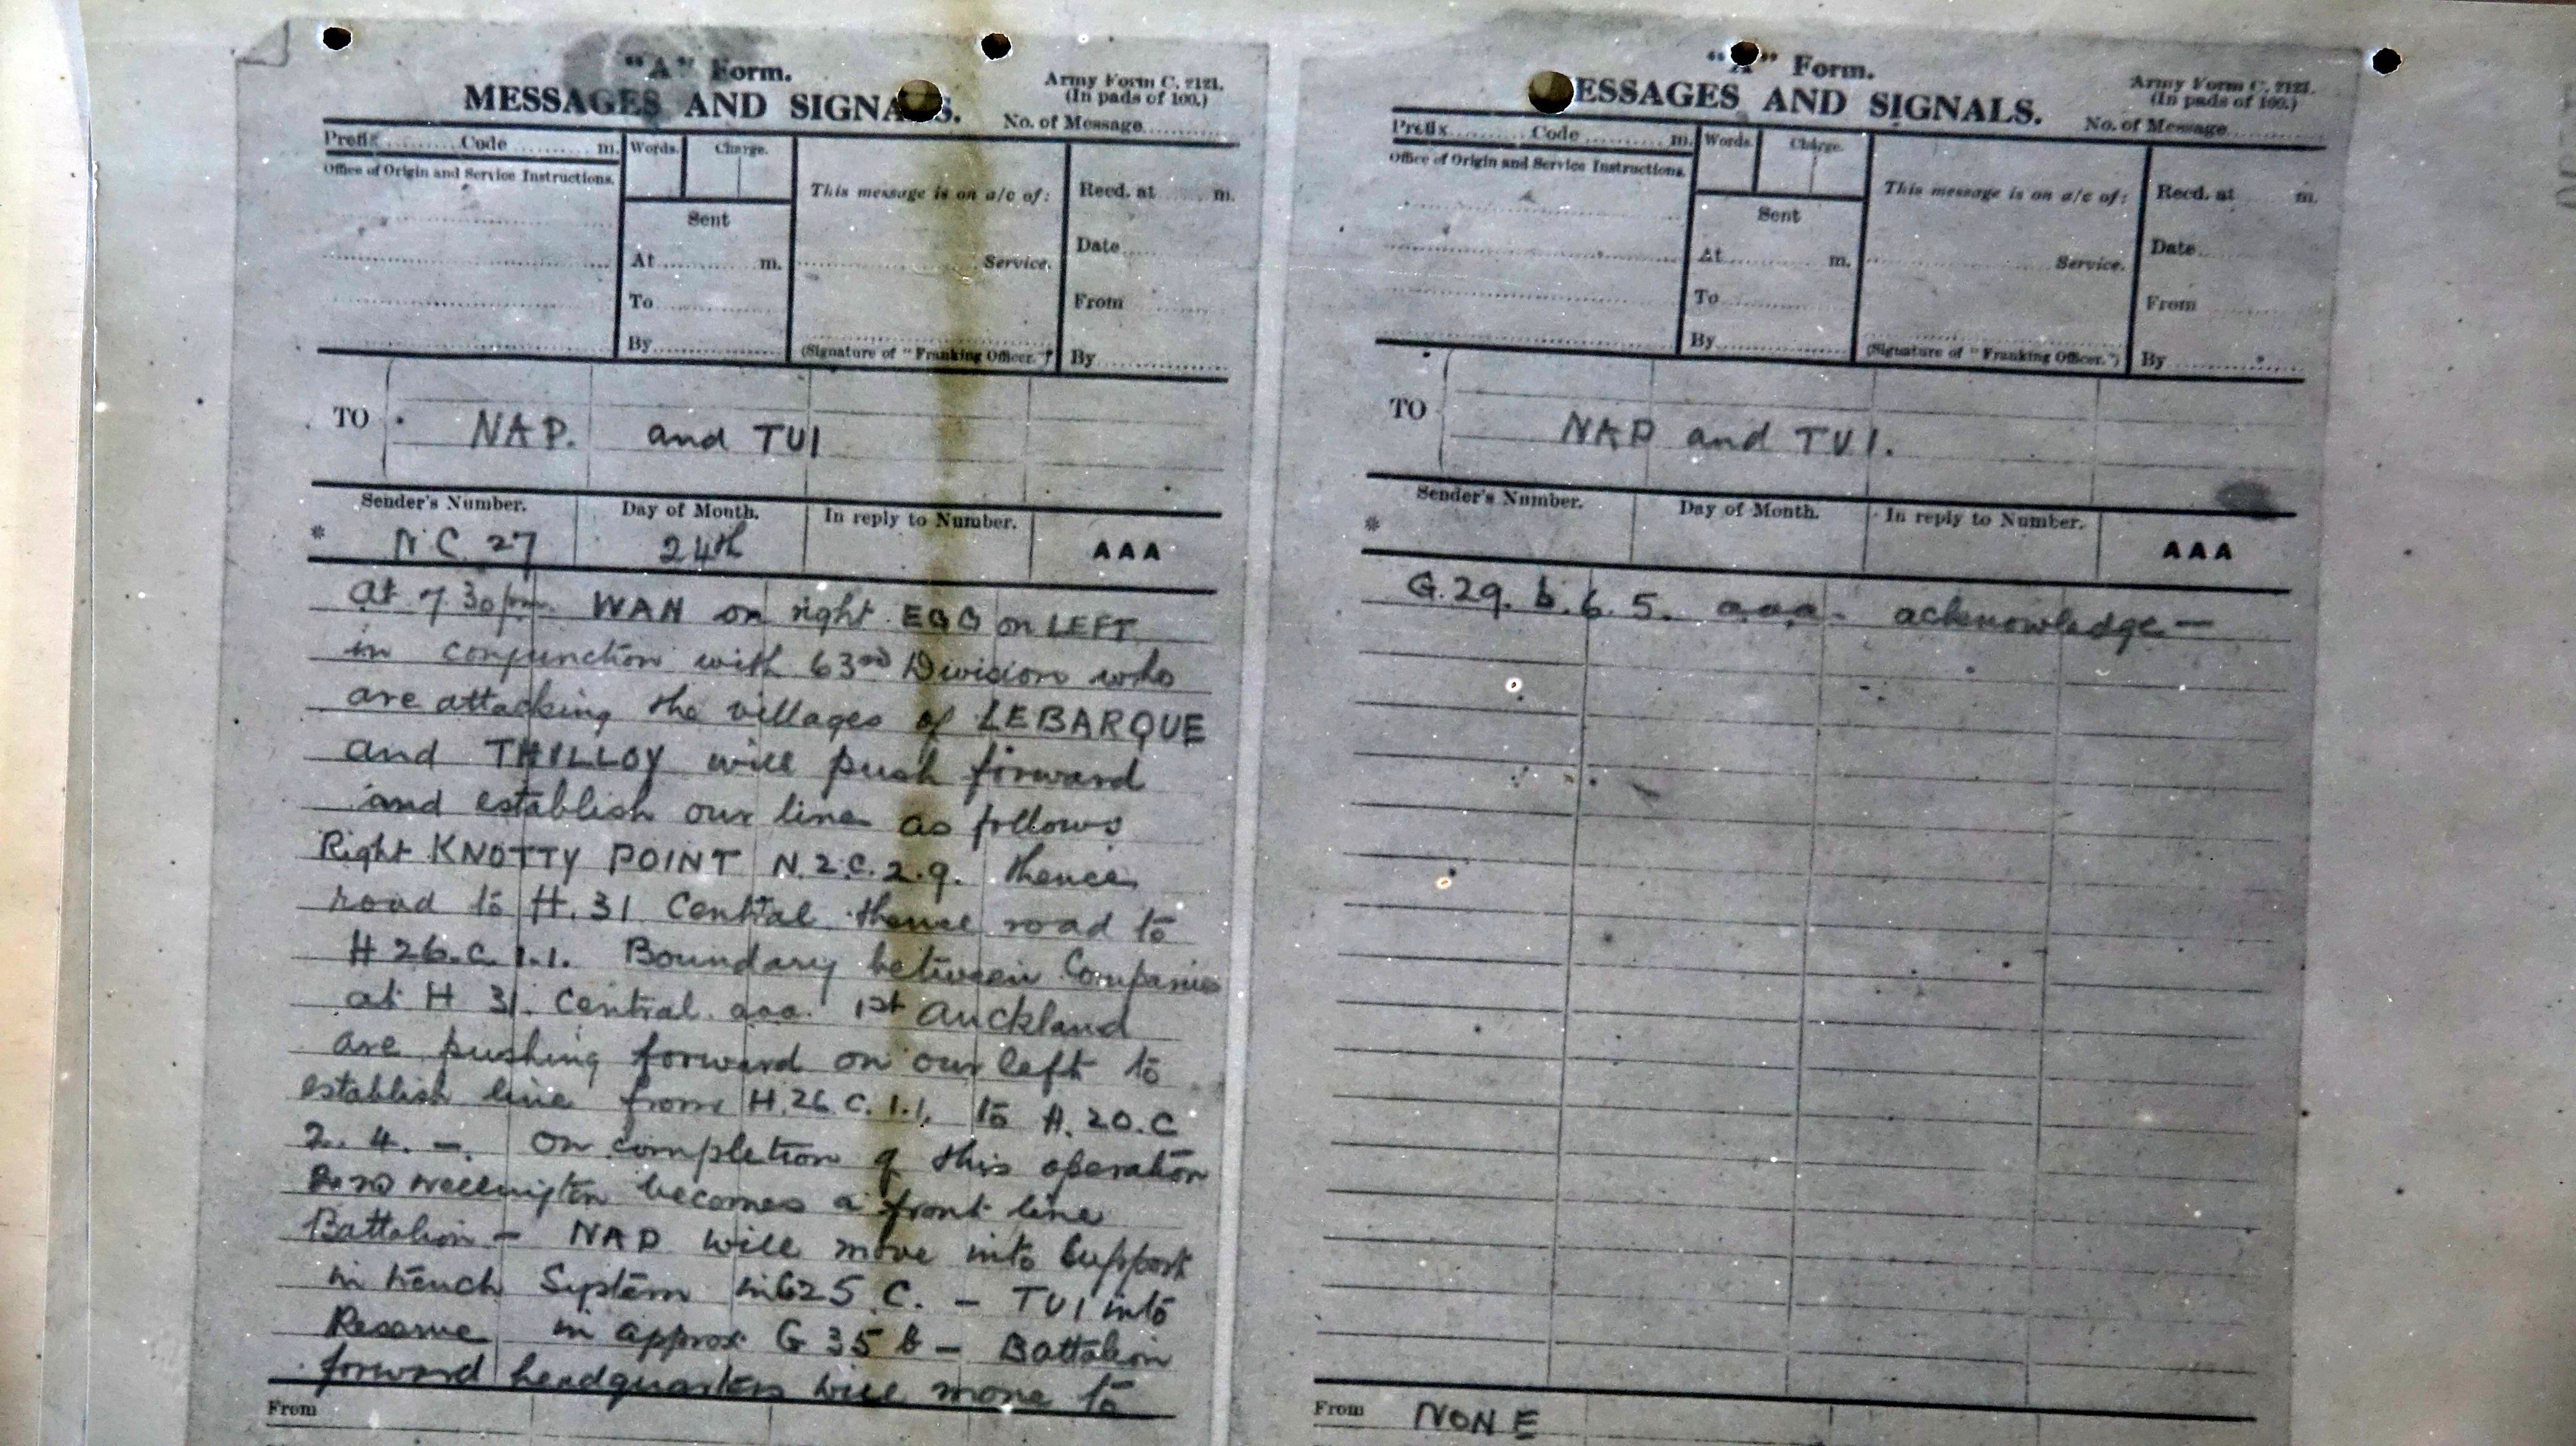 "A" Form.
MESSAGES AND SIGNALS.
Army Form C. 2121.
(In pads of 100.)
No. of Message
Prefix Code m.
Office of Origin and Service Instructions.
Words. Charge.
Sent
At m.
To
By
This message is on a/c of:
Service.
(Signature of "Franking Officer.")
Recd. at m.
Date
From
By
TO NAP. and TUI
Sender's Number. Day of Month. In reply to Number.
* N.C. 27 24th AAA
At 7 30 pm. WAN on right EGG on LEFT
in conjunction with 63rd Division who
are attacking the villages of LEBARQUE
and THILLOY will push forward
and establish our line as follows
Right KNOTTY POINT N.2.C.2.9. thence
road to H.31 Central thence road to
H 26.C.1.1. Boundary between Companies
at H 31. Central aaa. 1st Auckland
are pushing forward on our left to
establish line from H.26.C.1.1. to H.20.C
2.4. -. On completion of this operation
Wellington becomes a front line
Battalion - NAP will move into Support
in trench System in G25.C. - TUI into
Reserve in approx G 35 b - Battalion
forward headquarters will move to
From
"A" Form.
ESSAGES AND SIGNALS.
Army Form C. 2121.
(In pads of 100.)
No. of Message
Prefix Code m.
Office of Origin and Service Instructions.
Words. Charge.
Sent
At m.
To
By
This message is on a/c of:
Service.
(Signature of "Franking Officer.")
Recd. at m.
Date
From
By
TO NAP and TUI.
Sender's Number. Day of Month. In reply to Number.
* AAA
G.29.b.6.5. aaa. acknowledge -
From NONE